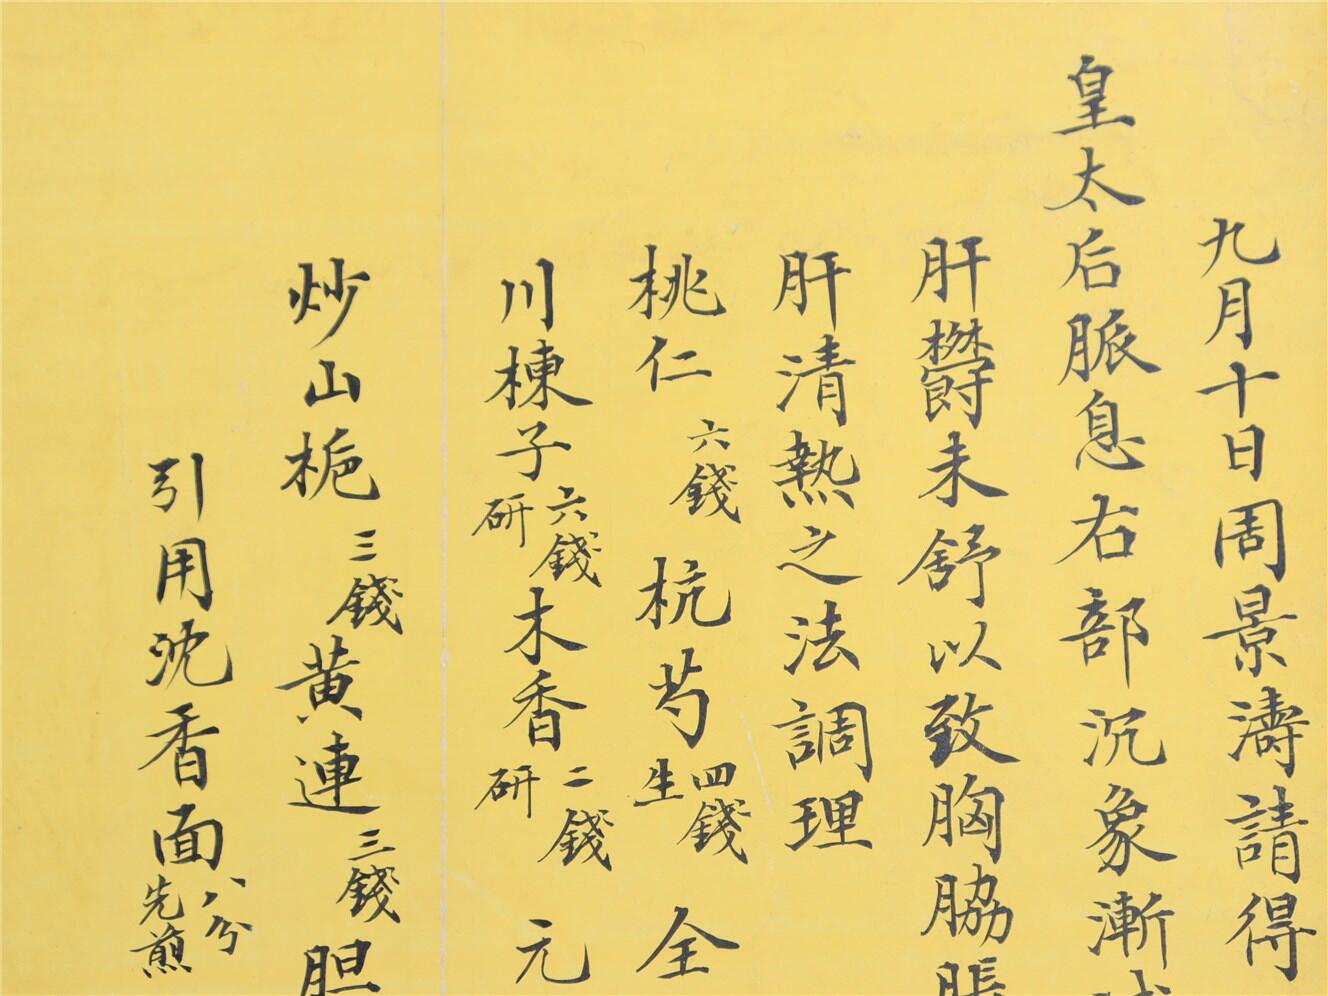 九月十日周景濤請得
皇太后脈息右部沉象漸
肝欝未舒以致胸脇脹
肝清熱之法調理
桃仁六錢 杭芍四錢生 全
川楝子六錢研 木香二錢研 元
炒山梔三錢 黄連三錢 胆
引用沈香面八分先煎